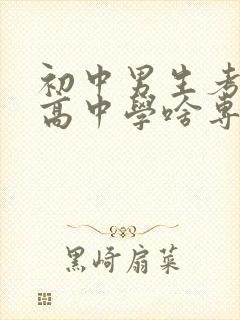 初中男生考
高中學啥專
黑崎扇菜